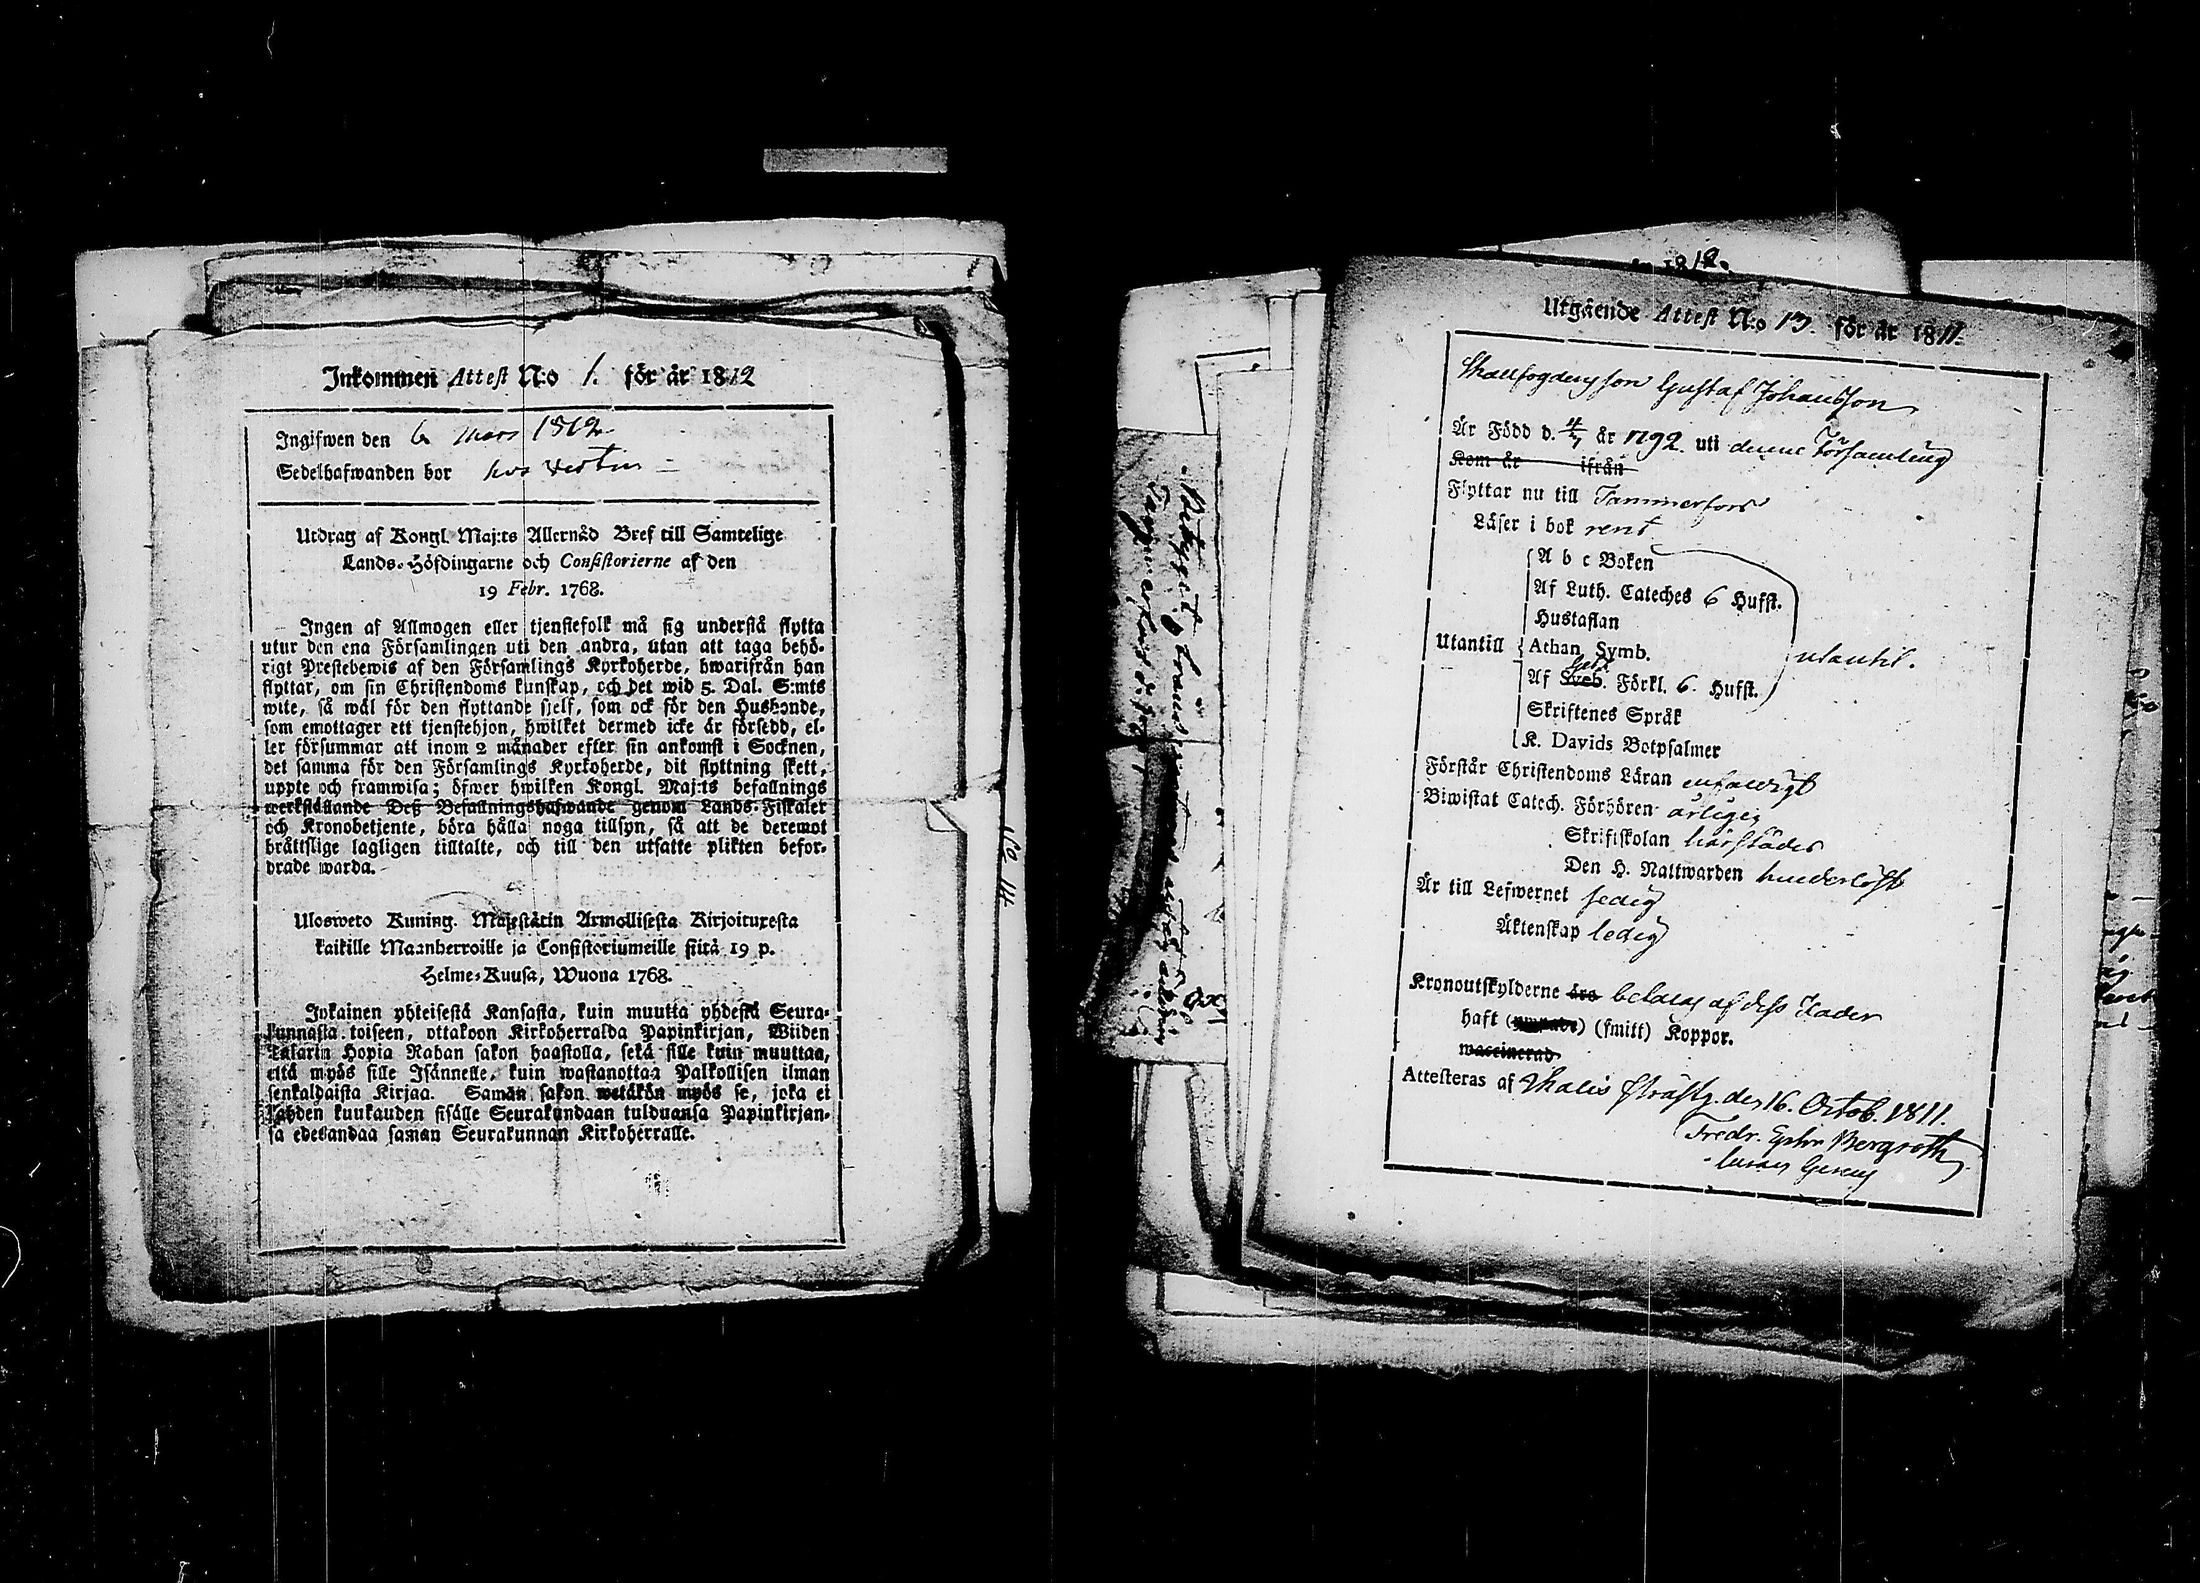 Inkommen Attest N:o 1. för år 1812
Ingifwen den 6 Mars 1812
Sedelhafwanden bor hos
Utdrag af Kongl. Maj:ts Allernåd Bref till Samtelige
Lands-Höfdingarne och Consistorierne af den
19 Febr. 1768.
Ingen af Allmogen eller tjenstefolk må sig understå flytta
utur den ena Församlingen uti den andra, utan att taga behö-
rigt Prestebewis af den Församlings Kyrkoherde, hwarifrån han
flyttar, om sin Christendoms kunskap, och det wid 5. Dal. S:mts
wite, så wäl för den flyttande sjelf, som ock för den Husbonde,
som emottager ett tjenstehjon, hwilket dermed icke är försedd, el-
ler försummar att inom 2 månader efter sin ankomst i Socknen,
det samma för den Församlings Kyrkoherde, dit flyttning skett,
uppte och framwisa; öfwer hwilken Kongl. Maj:ts befallnings
werkställande Deß Befallningshafwande genom Lands-Fiskaler
och Kronobetjente, böra hålla noga tillsyn, så att de deremot
bråttslige lagligen tilltalte, och till den utsatte plikten befor-
drade warda.
Uloswето Kuning. Majestätin Armollisesta Kirjoituxesta
kaikille Maanherroille ja Consistoriumeille siitä 19 p.
Helme-Kuusa, Wuona 1768.
Jokainen yhteisestä Kansasta, kuin muutta yhdestä Seura-
kunnasta toiseen, ottakoon Kirkoherralda Papinkirjan, Wiiden
Talarin Hopia Rahan sakon haastolla, sekä sille kuin muuttaa,
että myös sille Isännelle, kuin wastanottaa Palkollisen ilman
senkaldaista Kirjaa. Saman sakon wetäkön myös se, joka ei
kahden kuukauden sisälle Seurakundaan tulduansa Papinkirjan-
sa edesandaa saman Seurakunnan Kirkoherralle.
No 14
1812.
Utgående Attest N:o 13. för år 1811
Skallfogdens son Gustaf Johansson
Är Född d. år 1792. uti denne Församling
Kom år ifrån
Flyttar nu till Tammerfors
Läser i bok rent
A b c Boken
Af Luth. Cateches 6 Hufst.
Hustaflan
Utantill Athan. Symb. utantil.
Af Sveb. Förkl. 6. Hufst.
Skriftenes Språk
K. Davids Botpsalmer
Förstår Christendoms Läran enfaldigt
Biwistat Catech. Förhören årligen
Skriftskolan härstädes
Den H. Nattwarden hinderlöst
Är till Lefwernet sedig
Äktenskap ledig
Kronoutskylderne äro betalas af dess Fader
haft (smitt) Koppor.
waccinerad
Attesteras af Thalis Prästg. den 16. Octob. 1811.
Fredr. Ephr. Bergroth